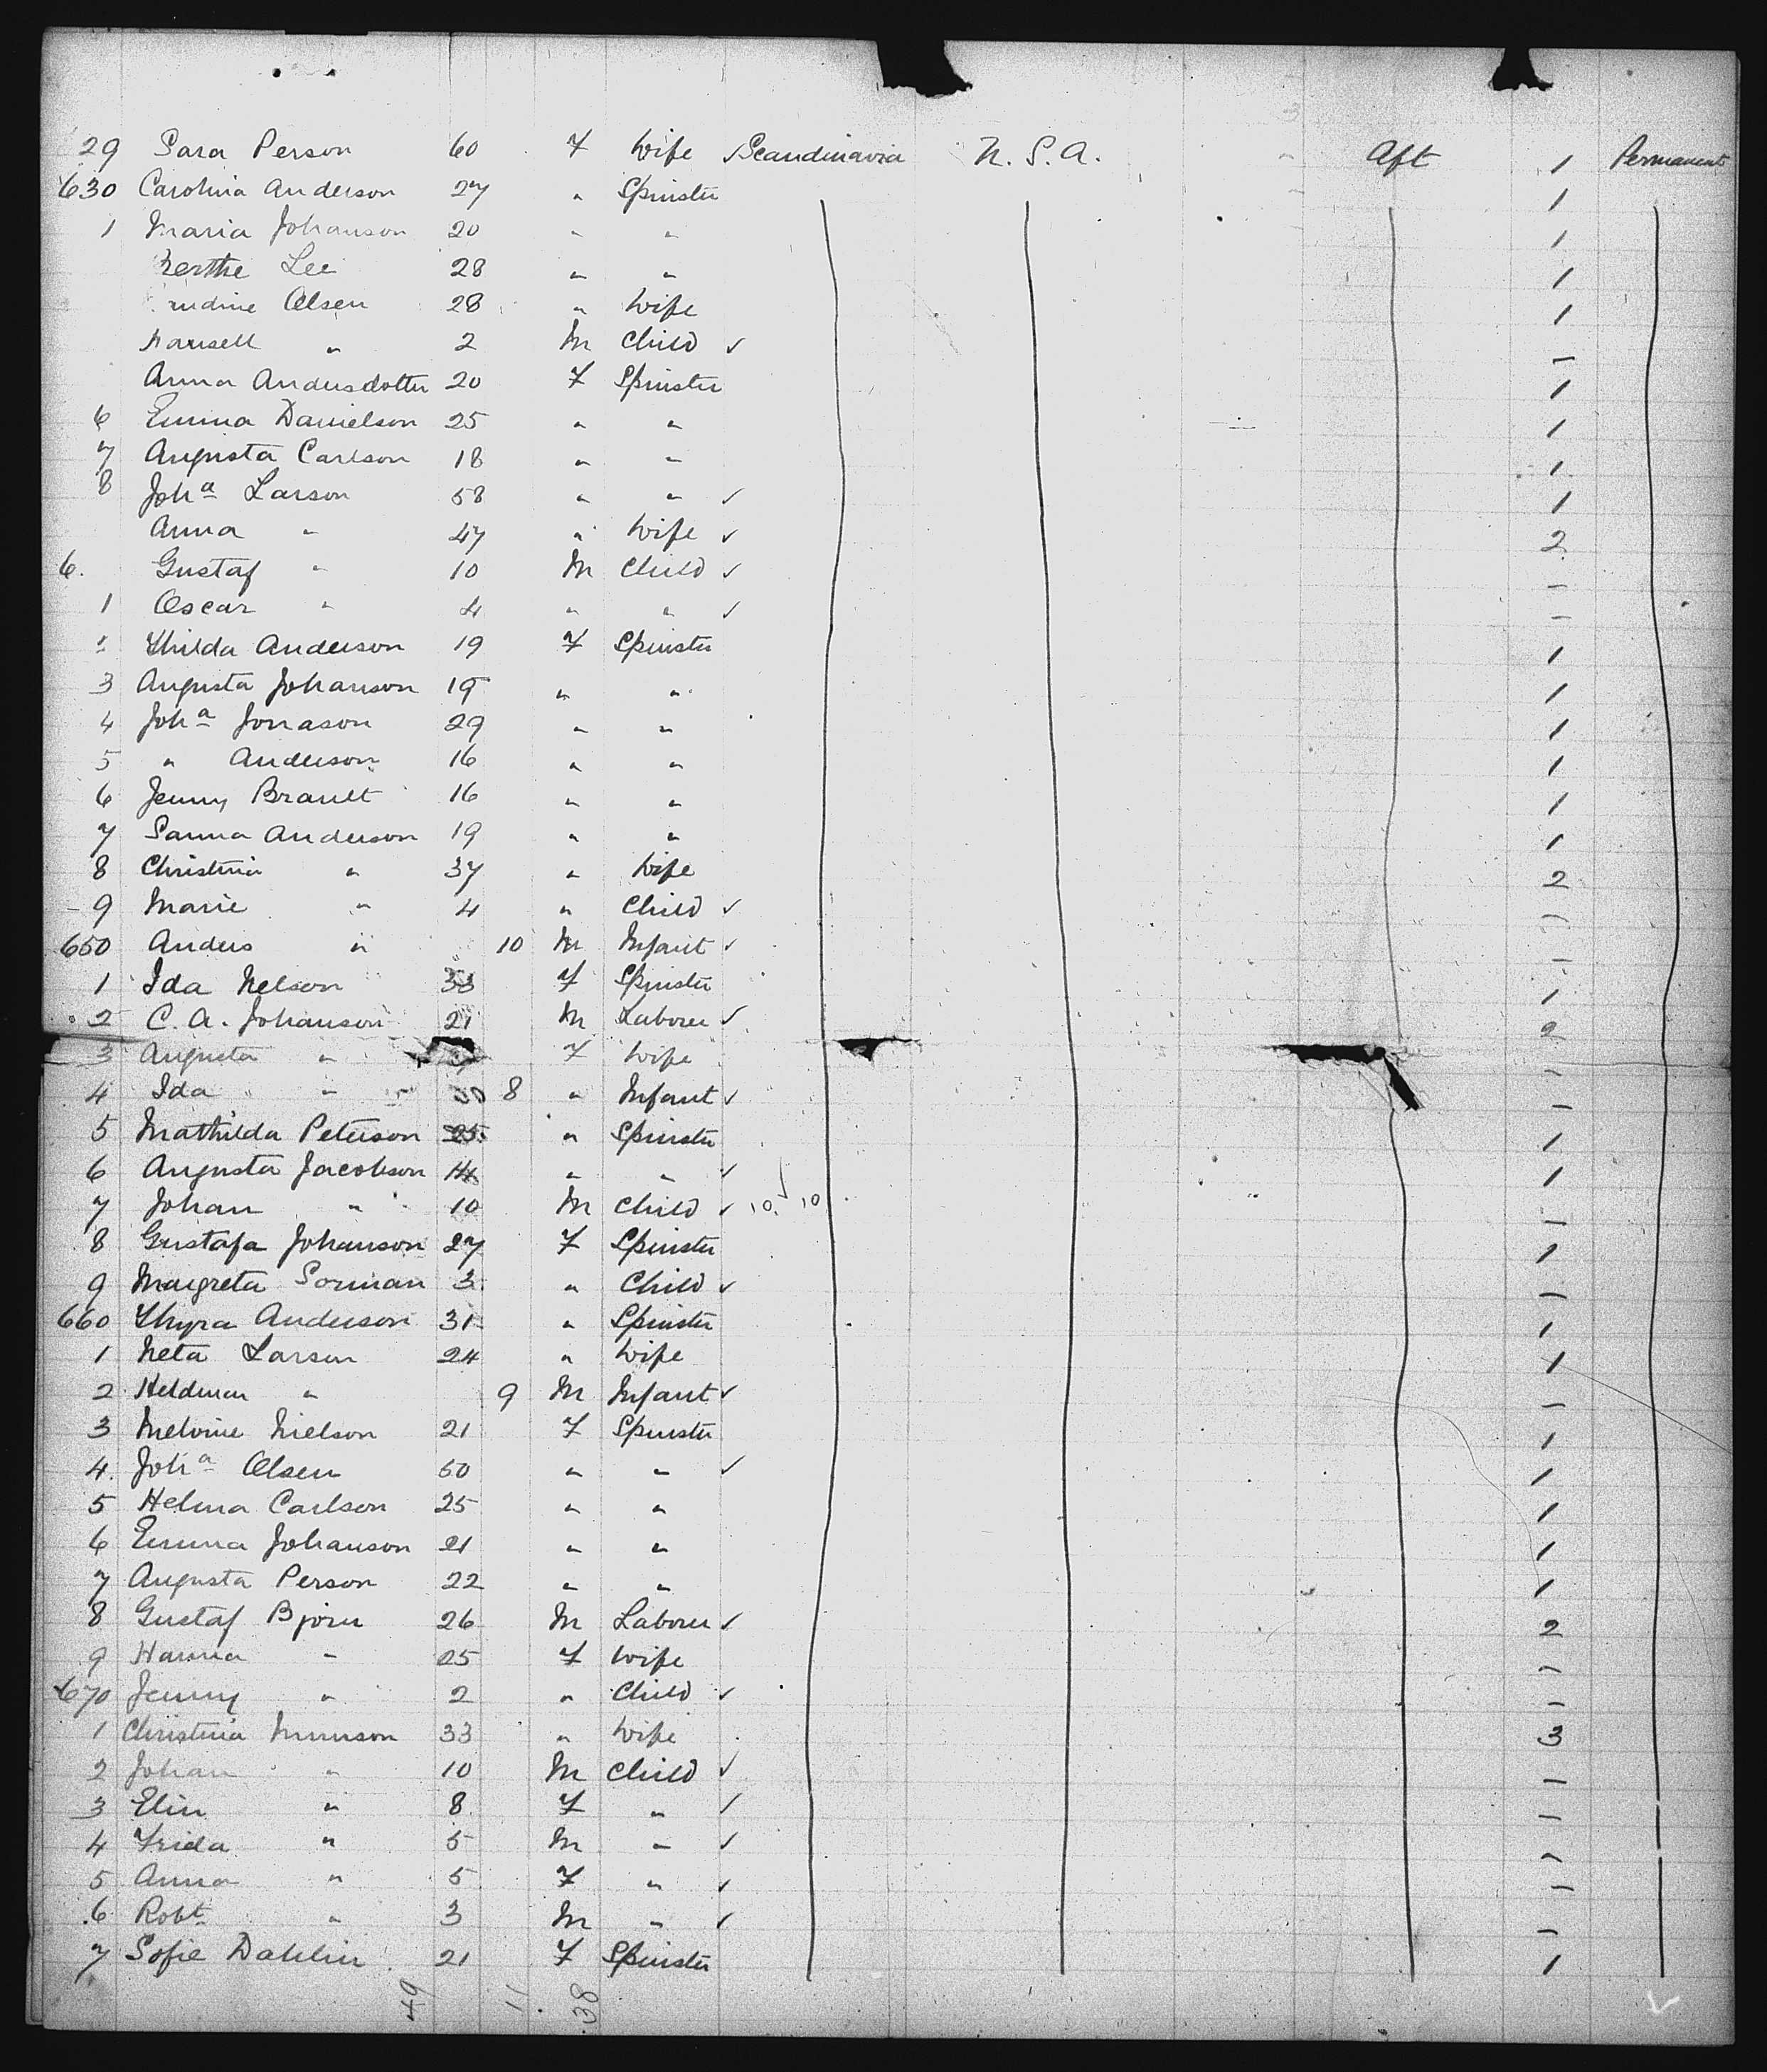 29 Sara Person 60 F Wife ✓ Scandinavia U.S.A. Aft 1 Permanent
630 Carolina Anderson 27 " Spinster 1
1 Maria Johanson 20 " " 1
Berthe Lee 28 " " 1
Olsen 28 " Wife 1
" 2 M Child ✓ –
Anna Andersdotter 20 F Spinster 1
6 Emma Danielson 25 " " 1
7 Augusta Carlson 18 " " 1
8 Joha Larson 58 " " ✓ 1
Anna " 47 " Wife ✓ 2
6. Gustaf " 10 M Child ✓ –
1 Oscar " 4 " " ✓ –
Thilda Anderson 19 F Spinster 1
3 Augusta Johanson 19 " " 1
4 Joha Jonason 29 " " 1
5 " Anderson 16 " " 1
6 Jenny Brandt 16 " " 1
7 Sanna Anderson 19 " " 1
8 Christina " 37 " Wife 2
9 Marie " 4 " Child ✓ –
650 Anders " 10 M Infant ✓ –
1 Ida Nelson 33 F Spinster 1
2 C. A. Johanson 21 M Laborer ✓ 2
3 Augusta " F Wife –
4 Ida " 8 " Infant ✓ –
5 Mathilda Peterson 25 " Spinster 1
6 Augusta Jacobson 14 " " ✓ 1
7 Johan " 10 M Child ✓ 10 ✓ 10 –
8 Gustafa Johanson 27 F Spinster 1
9 Margreta Sorman 3 " Child ✓ –
660 Thyra Anderson 31 " Spinster 1
1 Neta Larsen 24 " Wife 1
2 Heldman " 9 M Infant ✓ –
3 Melvine Nielson 21 F Spinster 1
4 Joha Olsen 50 " " ✓ 1
5 Helma Carlson 25 " " 1
6 Emma Johanson 21 " " 1
7 Augusta Person 22 " " 1
8 Gustaf Bjorn 26 M Laborer ✓ 2
9 Hanna " 25 F Wife –
670 Jenny " 2 " Child ✓ –
1 Christina Munson 33 " Wife 3
2 Johan " 10 M Child ✓ –
3 Elin " 8 F " ✓ –
4 Frida " 5 M " ✓ –
5 Anna " 5 F " ✓ –
6 Robt " 3 M " ✓ –
7 Sofie Dahlin 21 F Spinster 1
49 11 38